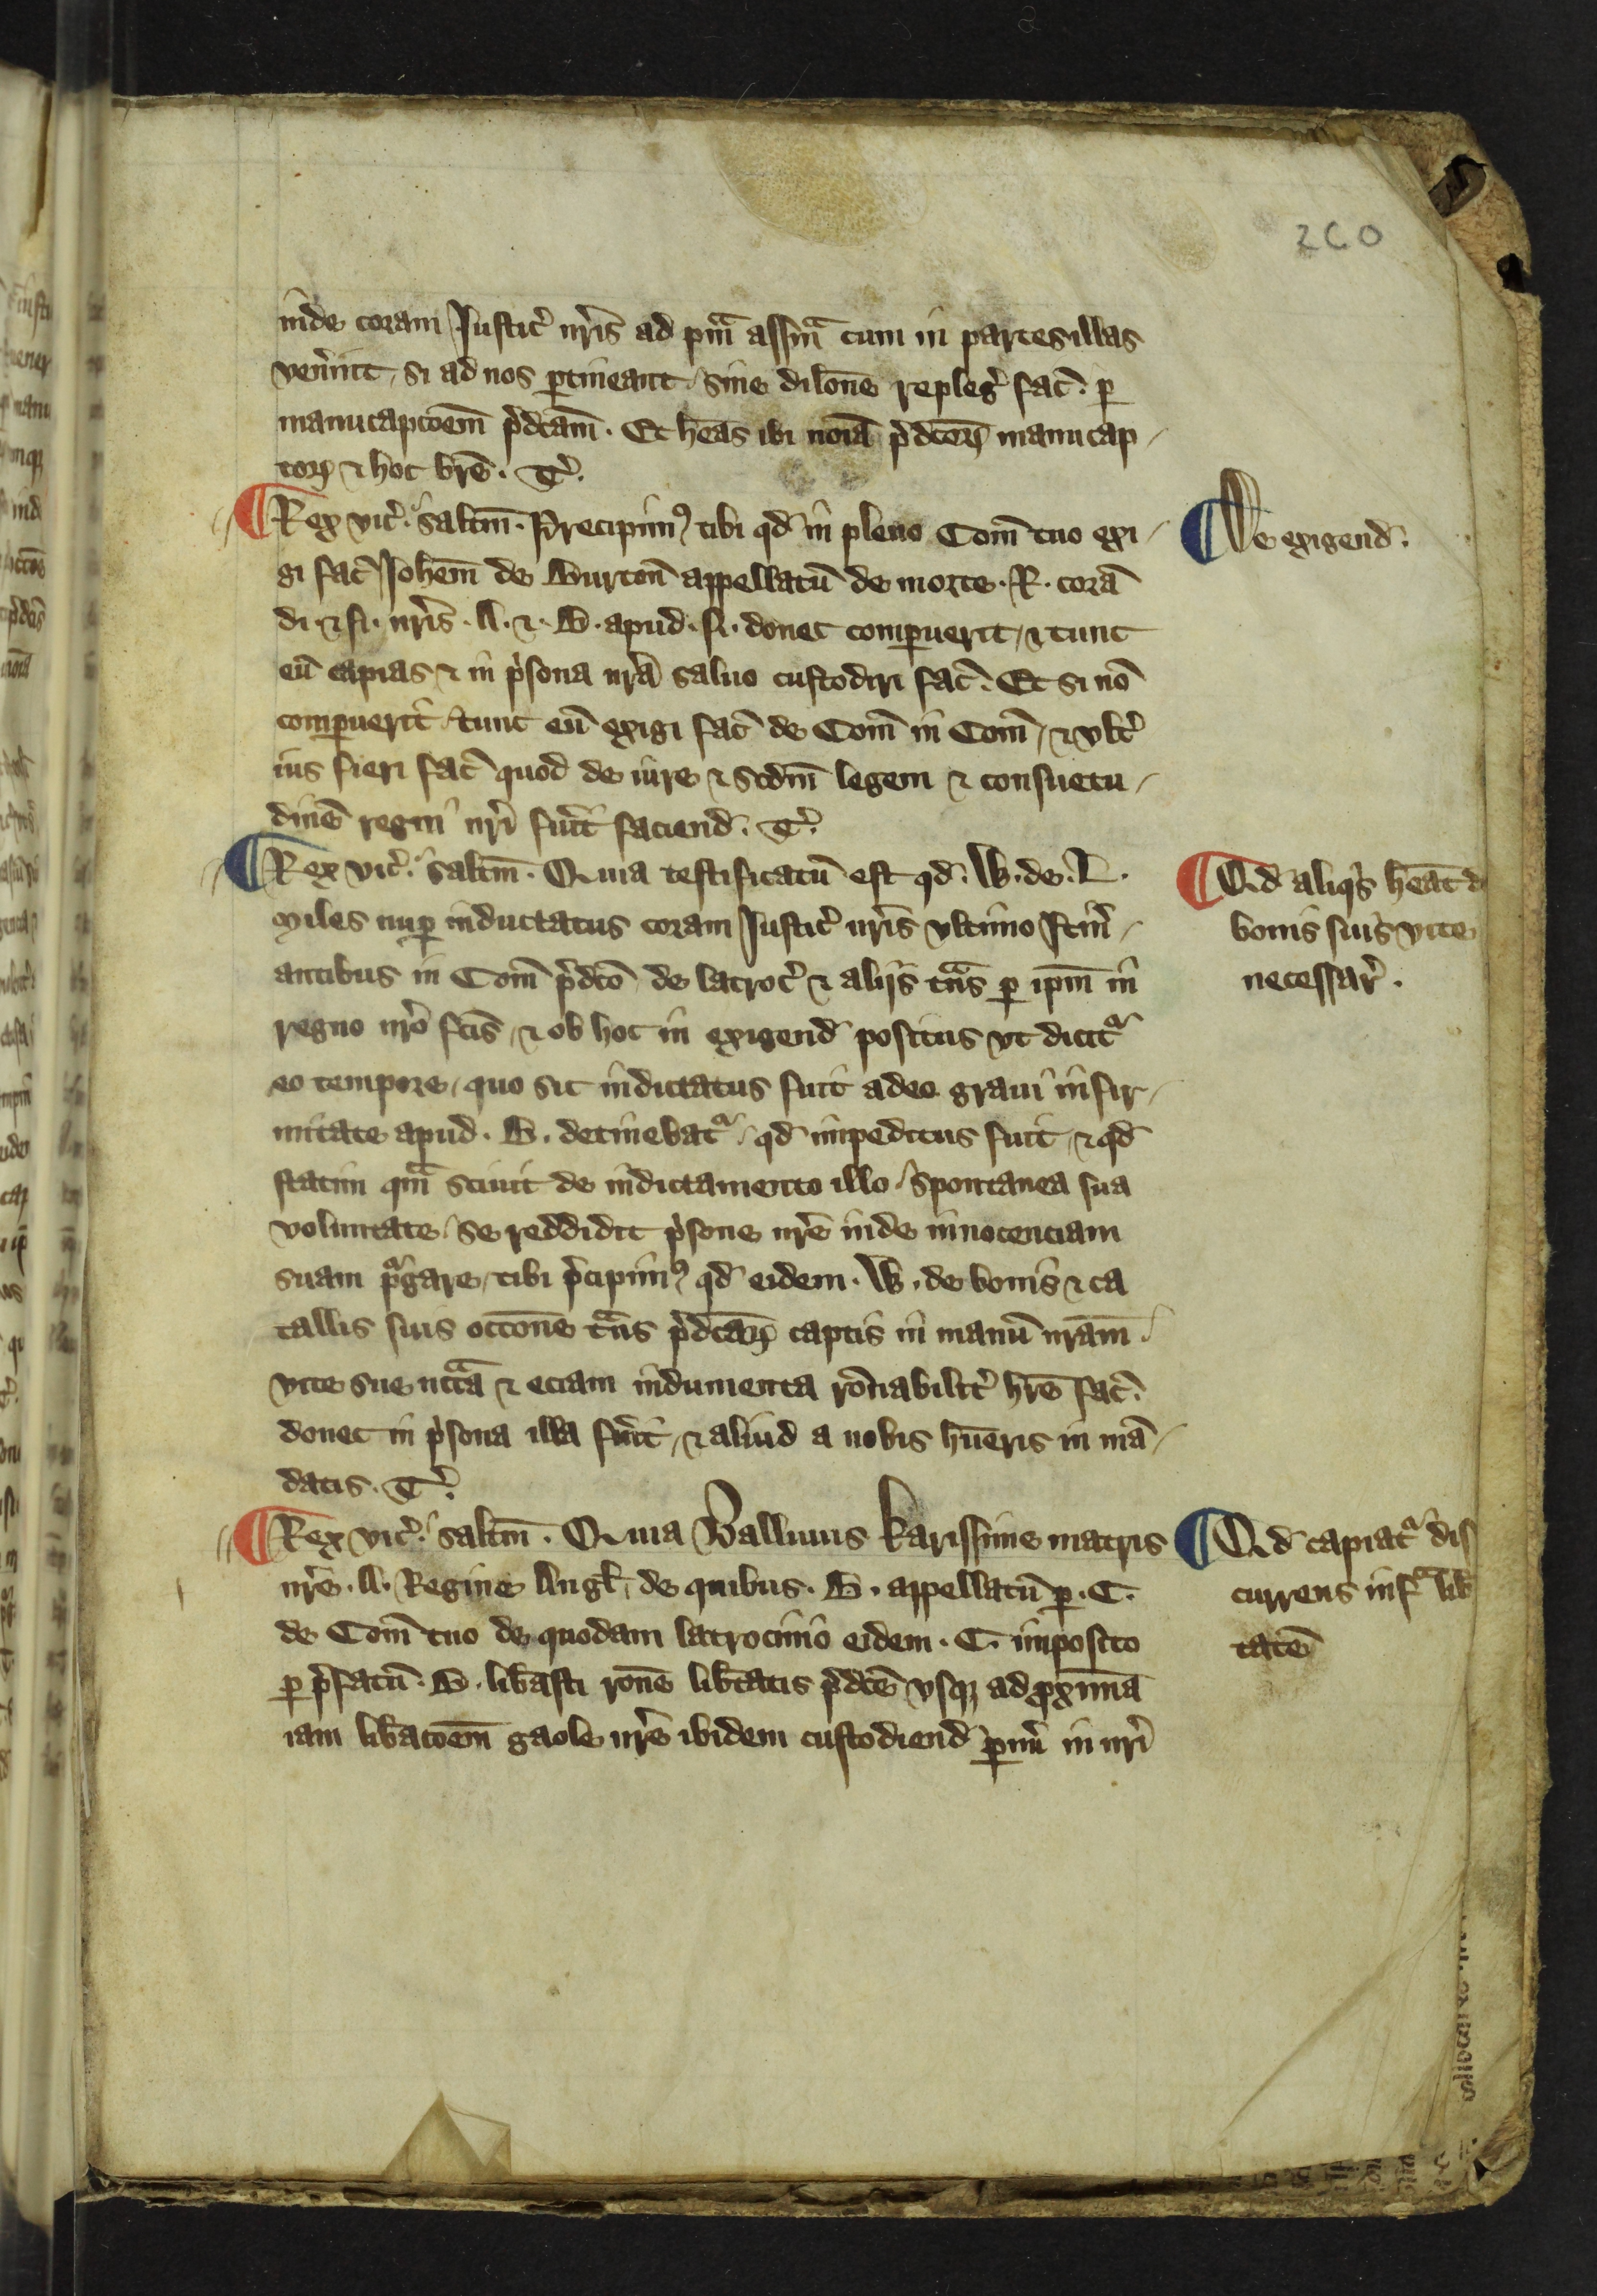 260
inde coram Iustic̉ nr̃is ad pm̃ assm̃ cum in partes illas
ven̉int, si ad nos ꝑtineant, sine dilõne repleg̉ fac̉. ꝑ
manucapcõem p̉dcãm. Et hẽas ibi noĩa p̉dcoꝝ manucap-
toꝝ ⁊ hoc brẽ. T̉.
¶ Rex vic̉. saltm̃. Precipim⁹ tibi qd̃ in pleno Com̃ tuo exi-
gi fac̉ Ioh̃em de Burton̉ appellatũ de morte .R. corã
di. ⁊ fi. nr̃is .A. ⁊ .B. apud .N. donec comꝑuerit, ⁊ tunc
eũ capias ⁊ in p̉sona nr̃a saluo custodiri fac̉. Et si nõ
comꝑuerit, tunc eũ exigi fac̉ de Com̃ in Com̃, ⁊ vlt̉
ius fieri fac̉ quod de iure ⁊ scdm̃ legem ⁊ consuetu-
dinẽ regni nr̃i fủit faciend̉. T̉.
¶ De exigend̉.
¶ Rex vic̉. saltm̃. Quia testificatũ est qd̃ .W. de .L.
Miles nuꝑ inductatus coram Iustic̉ nr̃is vltimo Itin̉-
antibus in Com̃ p̉dc̃o de latroc̉ ⁊ aliis tñs ꝑ ip̃m in
regno nr̃o fc̃is, ⁊ ob hoc in exigend̉ positus vt dicit᷑
eo tempore, quo sic indictatus fuit adeo graui infir-
mitate apud .B. detinebat᷑, qd̃ impeditus fuit, ⁊ qd̃
statim qm̃ sciuit de indictamento illo, spontanea sua
voluntate, se reddidit p̉sone nr̃e inde innocenciam
suam p᷑gare, tibi p̉cipim⁹ qd̃ eidem .W. de bonis ⁊ ca
tallis suis occõne tñs p̉dcãꝝ captis in manũ nr̃am.
vite sue nc̃cã ⁊ eciam indumenta rõnabilit̉ hr̃e fac̉.
donec in p̉sona illa fủit, ⁊ aliud a nobis hũeris in mã-
datis. T̉.
¶ Qd̃ aliq̉s hẽat d
bonis suis vite
necessar̉.
¶ Rex vic̉. saltm̃. Quia Balliuus karissime matris
nr̃e .A. Regine Angl̃, de quibus .B. appellatũ ꝑ .C.
de Com̃ tuo de quodam latrocinio eidem .C. imposito
ꝑ p̉fatũ .B. lib̃asti rõne lib̃tatis p̉dc̃e vsqꝫ ad ꝓximã
iam lib̃acõem gaole nr̃e ibidem custodiend̉ ꝑm̉ in nr̃i
¶ Qd̃ capiat᷑ dis
currens infᵃ lib̃
tatẽ